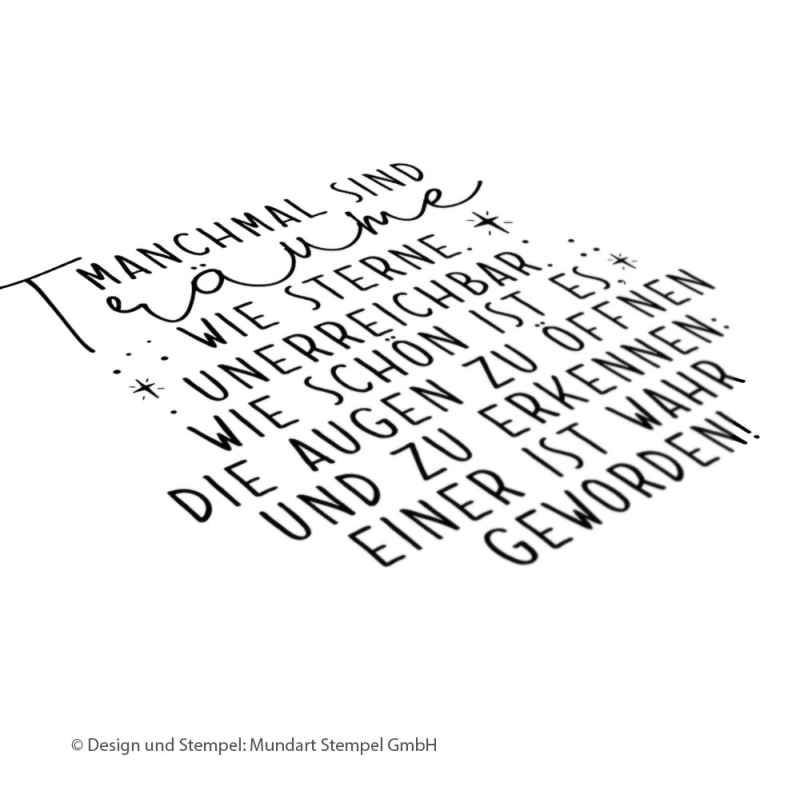 MANCHMAL SIND
Träume
WIE STERNE.
UNERREICHBAR.
WIE SCHÖN IST ES,
DIE AUGEN ZU ÖFFNEN
UND ZU ERKENNEN:
EINER IST WAHR
GEWORDEN!
© Design und Stempel: Mundart Stempel GmbH